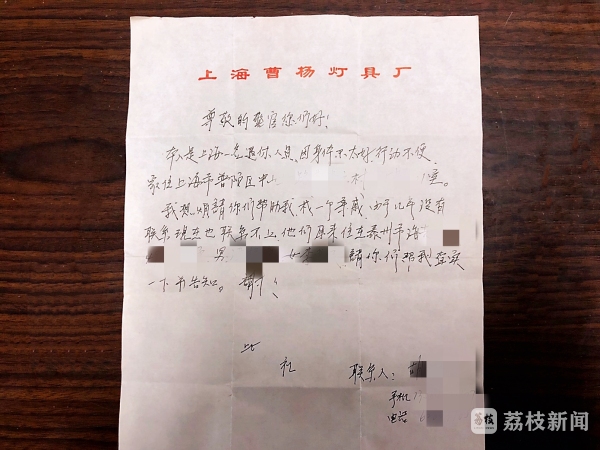 上海曹杨灯具厂
尊敬的警官你们好！
本人是上海一名退休人员，因身体不太好，行动不便，
家住上海市普陀区中山 村 室。
我想烦請你们帮助我找一个亲戚，由于几年没有
联系，现在也联系不上，他们原来住在泰州市海
男 女 請你们帮我查实
一下并告知。謝谢！
此
礼
联系人：
手机
电话
荔枝 荔枝新闻